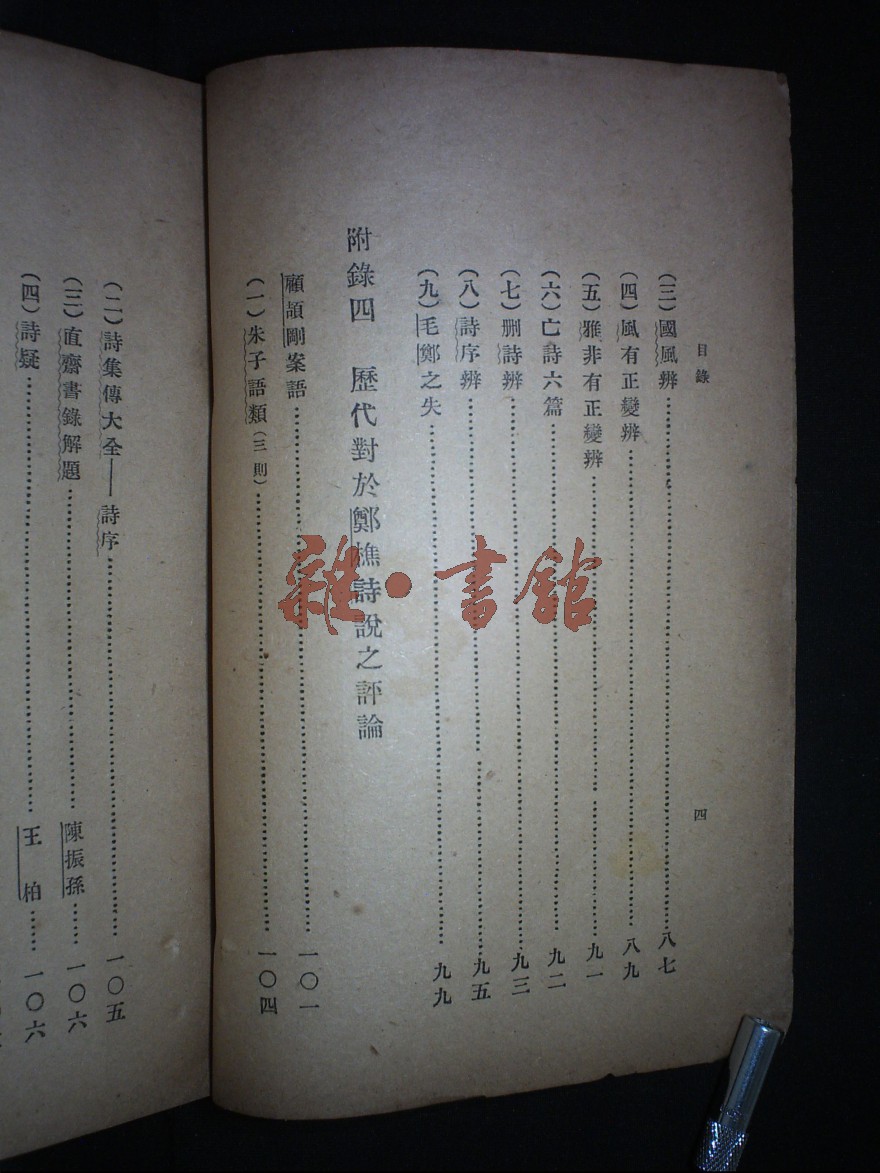 目錄
四
(三)國風辨……八七
(四)風有正變辨……八九
(五)雅非有正變辨……九一
(六)亡詩六篇……九二
(七)刪詩辨……九三
(八)詩序辨……九五
(九)毛鄭之失……九九
附錄四 歷代對於鄭樵詩說之評論
顧頡剛案語……一〇一
(一)朱子語類(三則)……一〇四
(二)詩集傳大全——詩序……一〇五
(三)直齋書錄解題……陳振孫……一〇六
(四)詩疑……王柏……一〇六
雜·書館